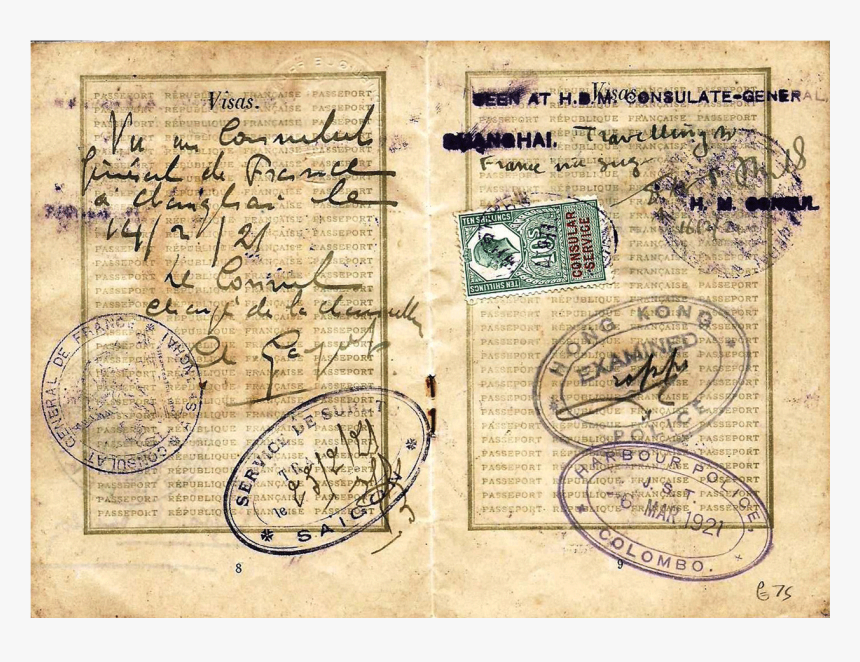 Visas.
Vu au Consulat
Général de France
à Changhai le
14/2/21
Le Consul
chargé de la chancellerie
CONSULAT GENERAL DE FRANCE
SHANGHAI
SERVICE DE SURETÉ
le
SAIGON
8
Visas.
SEEN AT H.B.M. CONSULATE-GENERAL,
SHANGHAI. Travelling to
France via Suez
H. M. CONSUL
16/2/21
TEN SHILLINGS
10s
CONSULAR
SERVICE
TEN SHILLINGS
HONG KONG
EXAMINED
POLICE
HARBOUR POLICE,
J. S. T.
MAR 1921
COLOMBO.
9
PASSEPORT RÉPUBLIQUE FRANÇAISE PASSEPORT